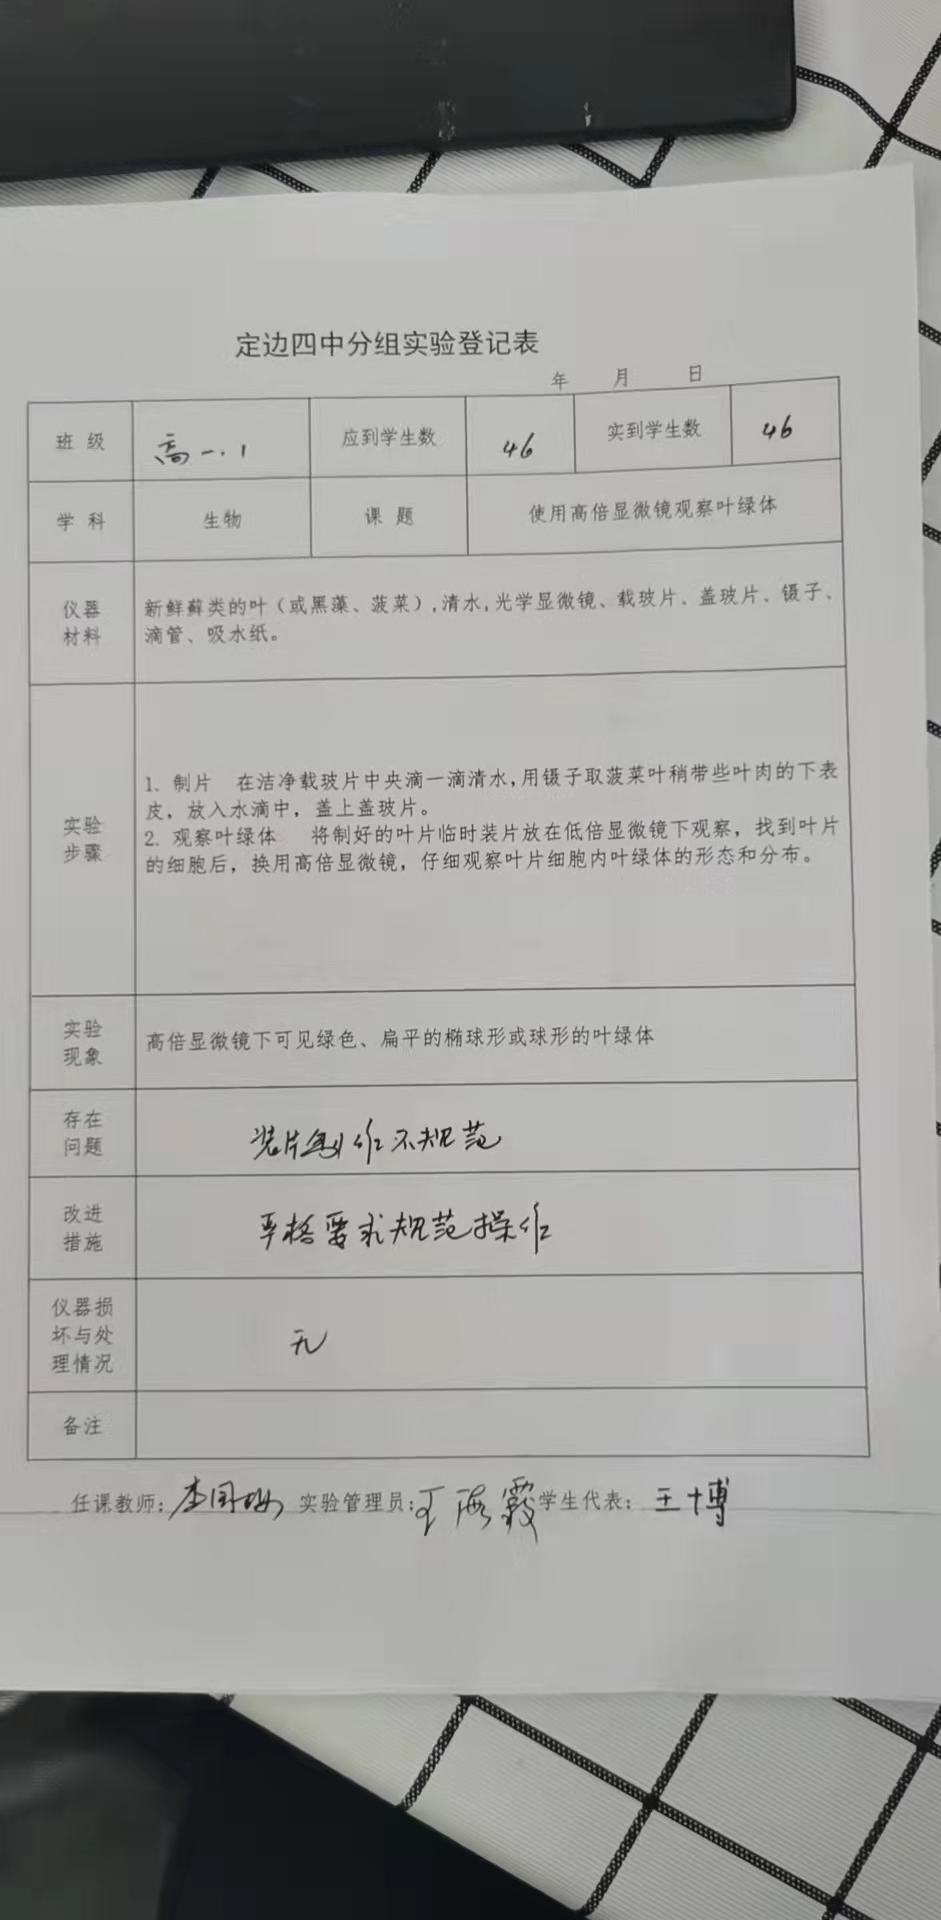 定边四中分组实验登记表
年 月 日
班 级 高一.1 应到学生数 46 实到学生数 46
学 科 生物 课 题 使用高倍显微镜观察叶绿体
仪器
材料
新鲜藓类的叶（或黑藻、菠菜）,清水,光学显微镜、载玻片、盖玻片、镊子、
滴管、吸水纸。
实验
步骤
1. 制片 在洁净载玻片中央滴一滴清水,用镊子取菠菜叶稍带些叶肉的下表
皮，放入水滴中，盖上盖玻片。
2. 观察叶绿体 将制好的叶片临时装片放在低倍显微镜下观察，找到叶片
的细胞后，换用高倍显微镜，仔细观察叶片细胞内叶绿体的形态和分布。
实验
现象
高倍显微镜下可见绿色、扁平的椭球形或球形的叶绿体
存在
问题
装片制作不规范
改进
措施
严格要求规范操作
仪器损
坏与处
理情况
无
备注
任课教师: 实验管理员:王海霞 学生代表: 王博